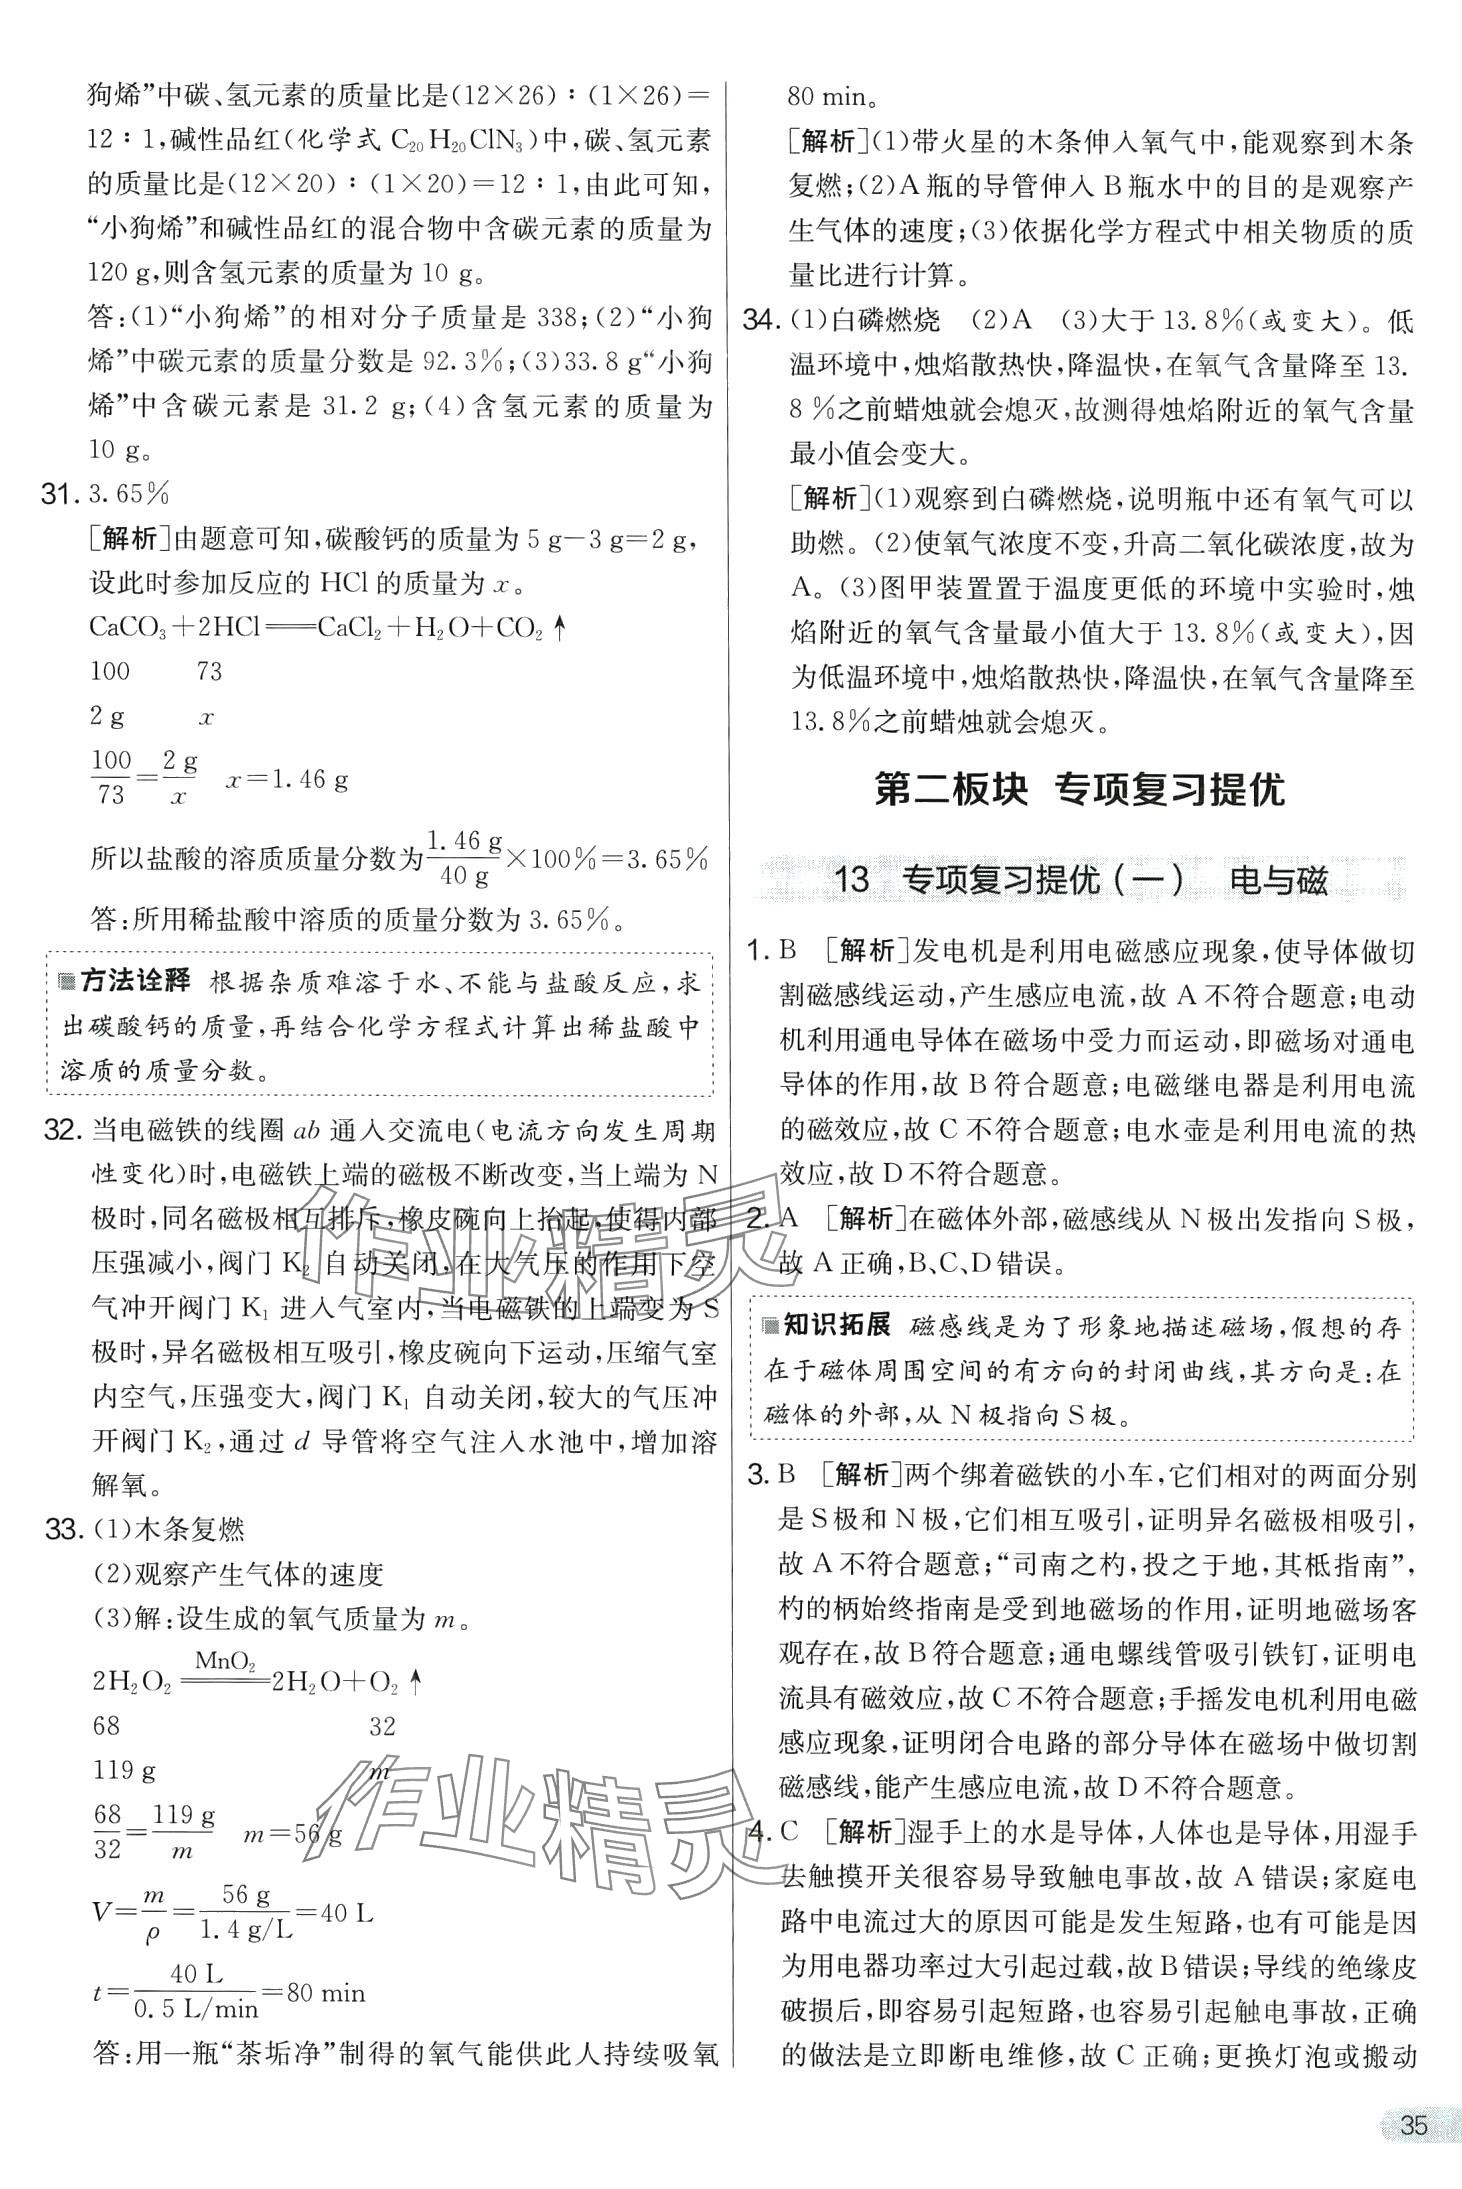 狗烯”中碳、氢元素的质量比是(12×26)∶(1×26)=
12∶1,碱性品红(化学式 C₂₀H₂₀ClN₃)中,碳、氢元素
的质量比是(12×20)∶(1×20)=12∶1,由此可知,
“小狗烯”和碱性品红的混合物中含碳元素的质量为
120 g,则含氢元素的质量为 10 g。
答:(1)“小狗烯”的相对分子质量是 338;(2)“小狗
烯”中碳元素的质量分数是 92.3%;(3)33.8 g“小狗
烯”中含碳元素是 31.2 g;(4)含氢元素的质量为
10 g。
31. 3.65%
[解析]由题意可知,碳酸钙的质量为 5 g-3 g=2 g,
设此时参加反应的 HCl 的质量为 x。
CaCO₃+2HCl══CaCl₂+H₂O+CO₂↑
100 73
2 g x
100/73=2 g/x x=1.46 g
所以盐酸的溶质质量分数为1.46 g/40 g×100%=3.65%
答:所用稀盐酸中溶质的质量分数为 3.65%。
方法诠释 根据杂质难溶于水、不能与盐酸反应,求
出碳酸钙的质量,再结合化学方程式计算出稀盐酸中
溶质的质量分数。
32. 当电磁铁的线圈 ab 通入交流电(电流方向发生周期
性变化)时,电磁铁上端的磁极不断改变,当上端为 N
极时,同名磁极相互排斥,橡皮碗向上抬起,使得内部
压强减小,阀门 K₂ 自动关闭,在大气压的作用下空
气冲开阀门 K₁ 进入气室内,当电磁铁的上端变为 S
极时,异名磁极相互吸引,橡皮碗向下运动,压缩气室
内空气,压强变大,阀门 K₁ 自动关闭,较大的气压冲
开阀门 K₂,通过 d 导管将空气注入水池中,增加溶
解氧。
33. (1)木条复燃
(2)观察产生气体的速度
(3)解:设生成的氧气质量为 m。
2H₂O₂ ══MnO₂══ 2H₂O+O₂↑
68 32
119 g m
68/32=119 g/m m=56 g
V=m/ρ=56 g/1.4 g/L=40 L
t=40 L/0.5 L/min=80 min
答:用一瓶“茶垢净”制得的氧气能供此人持续吸氧
80 min。
[解析](1)带火星的木条伸入氧气中,能观察到木条
复燃;(2)A 瓶的导管伸入 B 瓶水中的目的是观察产
生气体的速度;(3)依据化学方程式中相关物质的质
量比进行计算。
34. (1)白磷燃烧 (2)A (3)大于 13.8%(或变大)。低
温环境中,烛焰散热快,降温快,在氧气含量降至 13.
8%之前蜡烛就会熄灭,故测得烛焰附近的氧气含量
最小值会变大。
[解析](1)观察到白磷燃烧,说明瓶中还有氧气可以
助燃。(2)使氧气浓度不变,升高二氧化碳浓度,故为
A。(3)图甲装置置于温度更低的环境中实验时,烛
焰附近的氧气含量最小值大于 13.8%(或变大),因
为低温环境中,烛焰散热快,降温快,在氧气含量降至
13.8%之前蜡烛就会熄灭。
第二板块 专项复习提优
13 专项复习提优(一) 电与磁
1. B [解析]发电机是利用电磁感应现象,使导体做切
割磁感线运动,产生感应电流,故 A 不符合题意;电动
机利用通电导体在磁场中受力而运动,即磁场对通电
导体的作用,故 B 符合题意;电磁继电器是利用电流
的磁效应,故 C 不符合题意;电水壶是利用电流的热
效应,故 D 不符合题意。
2. A [解析]在磁体外部,磁感线从 N 极出发指向 S 极,
故 A 正确,B、C、D 错误。
知识拓展 磁感线是为了形象地描述磁场,假想的存
在于磁体周围空间的有方向的封闭曲线,其方向是:在
磁体的外部,从 N 极指向 S 极。
3. B [解析]两个绑着磁铁的小车,它们相对的两面分别
是 S 极和 N 极,它们相互吸引,证明异名磁极相吸引,
故 A 不符合题意;“司南之杓,投之于地,其柢指南”,
杓的柄始终指南是受到地磁场的作用,证明地磁场客
观存在,故 B 符合题意;通电螺线管吸引铁钉,证明电
流具有磁效应,故 C 不符合题意;手摇发电机利用电磁
感应现象,证明闭合电路的部分导体在磁场中做切割
磁感线,能产生感应电流,故 D 不符合题意。
4. C [解析]湿手上的水是导体,人体也是导体,用湿手
去触摸开关很容易导致触电事故,故 A 错误;家庭电
路中电流过大的原因可能是发生短路,也有可能是因
为用电器功率过大引起过载,故 B 错误;导线的绝缘皮
破损后,即容易引起短路,也容易引起触电事故,正确
的做法是立即断电维修,故 C 正确;更换灯泡或搬动
作业精灵
作业精灵
35